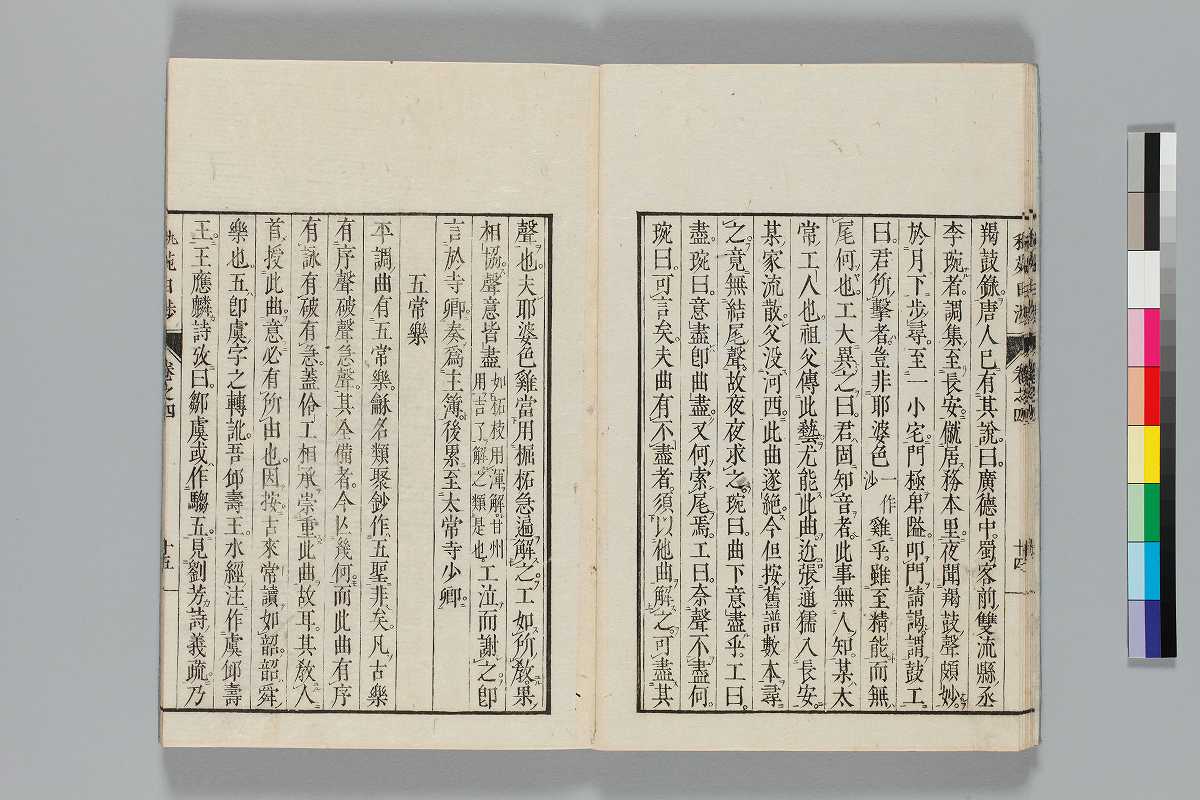 羯鼓錄唐人已有其說曰廣德中蜀客前雙流縣丞
李琬者調集至長安僦居務本里夜聞羯鼓聲頗妙
於月下步尋至一小宅門極卑隘叩門請謁謂鼓工
曰君所擊者豈非耶婆色一作沙雞乎雖至精能而無
尾何也工大異之曰君固知音者此事無人知某太
常工人也祖父傳此藝尤能此曲近張通孺入長安
某家流散父没河西此曲遂絶今但按舊譜數本尋
之竟無結尾聲故夜夜求之琬曰曲下意盡乎工曰
盡琬曰意盡卽曲盡又何索尾焉工曰奈聲不盡何
琬曰可言矣夫曲有不盡者須以他曲解之可盡其
聲也夫耶婆色雞當用掘柘急遍解之工如所敎果
相協聲意皆盡如柘枝用渾解甘州用吉了解之類是也工泣而謝之卽
言於寺卿奏爲主簿後累至太常寺少卿
五常樂
平調曲有五常樂龢名類聚鈔作五聖非矣凡古樂
有序聲破聲急聲其全備者今以幾何而此曲有序
有詠有破有急蓋伶工相承崇重此曲故耳其敎人
首授此曲意必有所由也因按古來常讀如韶韶舜
樂也五卽虞字之轉訛吾仰壽王水經注作虞仰壽
王王應麟詩攷曰鄒虞或作騶五見劉芳詩義疏乃
卷之四
十五